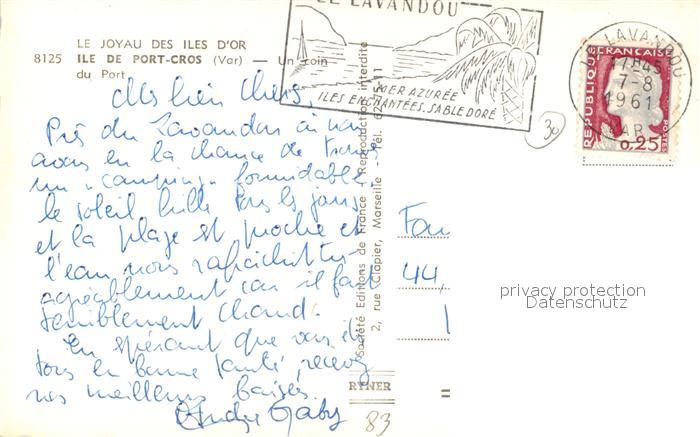 LE JOYAU DES ILES D'OR
8125 ILE DE PORT-CROS (Var) — Un coin
du Port
LE LAVANDOU
MER AZURÉE
ILES ENCHANTÉES. SABLE DORÉ
LE LAVANDOU
17H45
7-8
1961
VAR
REPUBLIQUE FRANÇAISE
0,25
30
Mes bien chers,
Près du Lavandou où nous
avons eu la chance de trouver
un "camping" formidable
le soleil brille tous les jours
et la plage est proche et
l'eau nous rafraichit
agréablement car il fait
terriblement chaud.
En espérant que vous êtes
tous en bonne santé, recevez
nos meilleurs baisers.
Gaby
83
Société Editions de France - Reproduction interdite
2, rue Clapier, Marseille - Tél.
RYNER
Fou
44,
1
privacy protection
Datenschutz